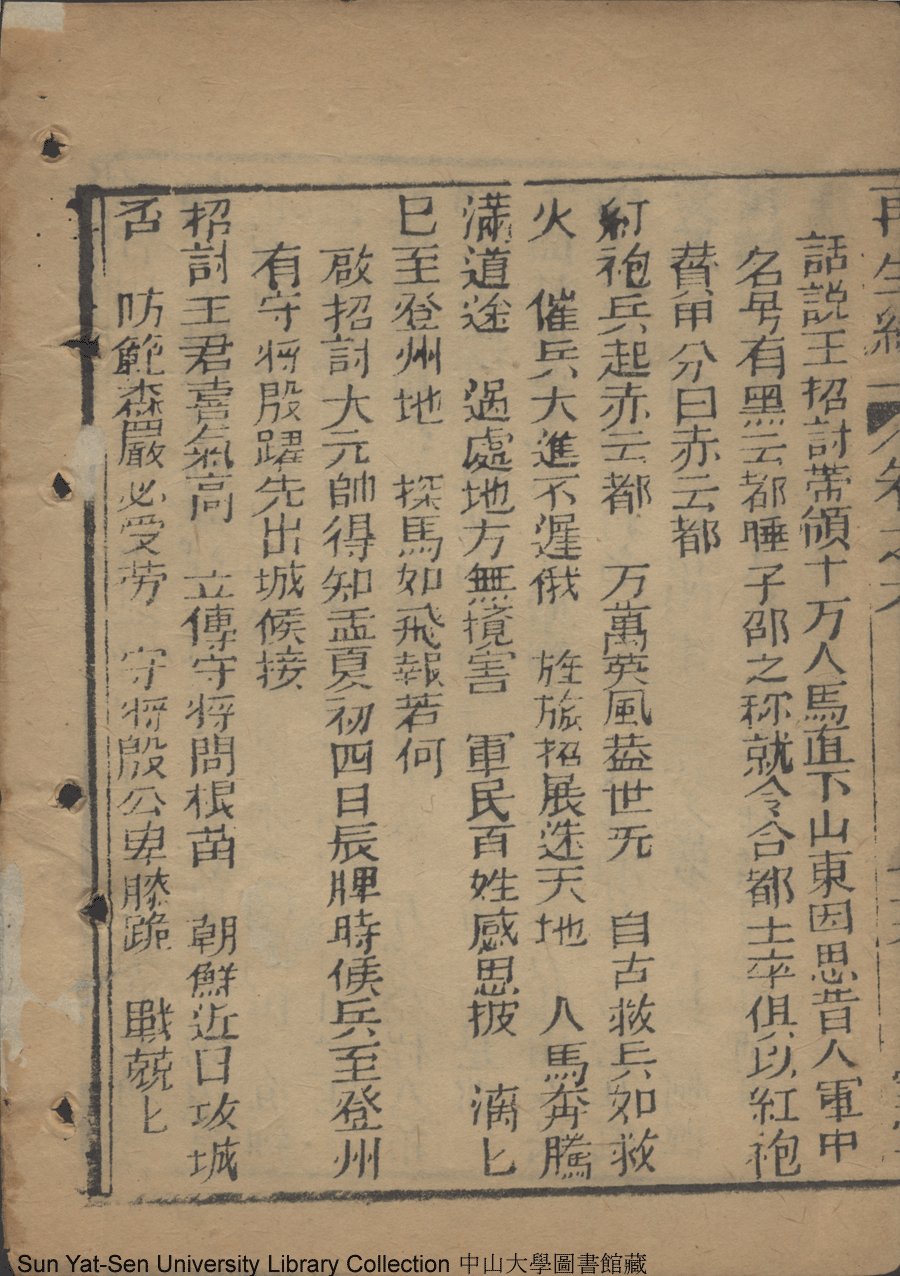 再生緣
卷之六
話說王招討帶領十万人馬直下山東因思昔人軍中
名号有黑云都睡子邵之称就令合都士卒俱以紅袍
賛甲分曰赤云都
紅袍兵起赤云都　万萬英風蓋世无　自古救兵如救
火　催兵大進不遲俄　旌旅招展迷天地　人馬奔騰
滿道途　過處地方無擾害　軍民百姓感思披　漓匕
已至登州地　探馬如飛報若何
啟招討大元帥得知孟夏初四日辰牌時候兵至登州
有守将殷躍先出城候接
招討王君喜氣高　立傳守将問根苗　朝鮮近日攻城
否　防範森嚴必受劳　守将殷公卑膝跪　戰兢匕
Sun Yat-Sen University Library Collection 中山大學圖書館藏